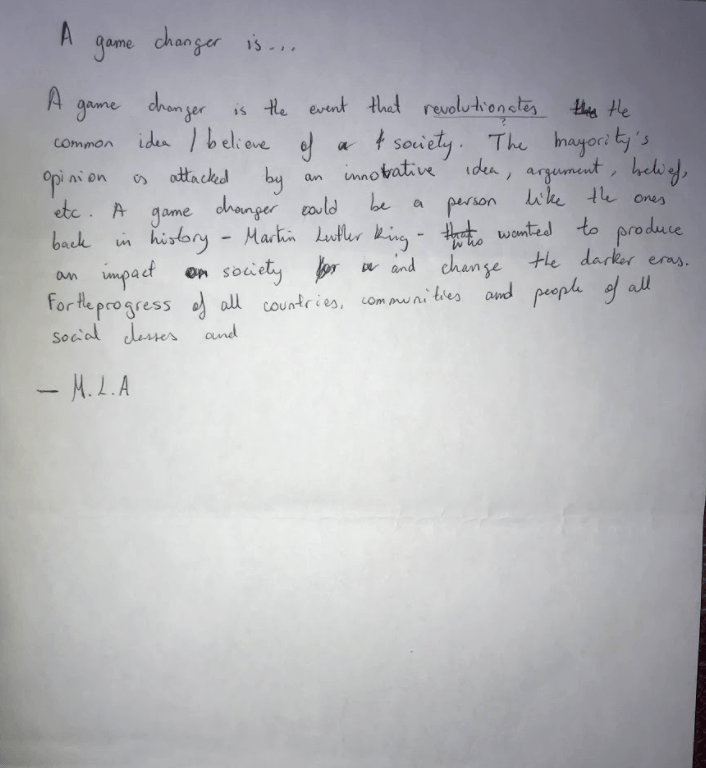 A game changer is...
A game changer is the event that revolutionates the
?
common idea / believe of a society. The mayority's
opinion is attacked by an innovative idea, argument, belief,
etc. A game changer could be a person like the ones
back in history - Martin Luther King - who wanted to produce
an impact on society and change the darker eras.
For the progress of all countries, communities and people of all
social classes and
— M.L.A